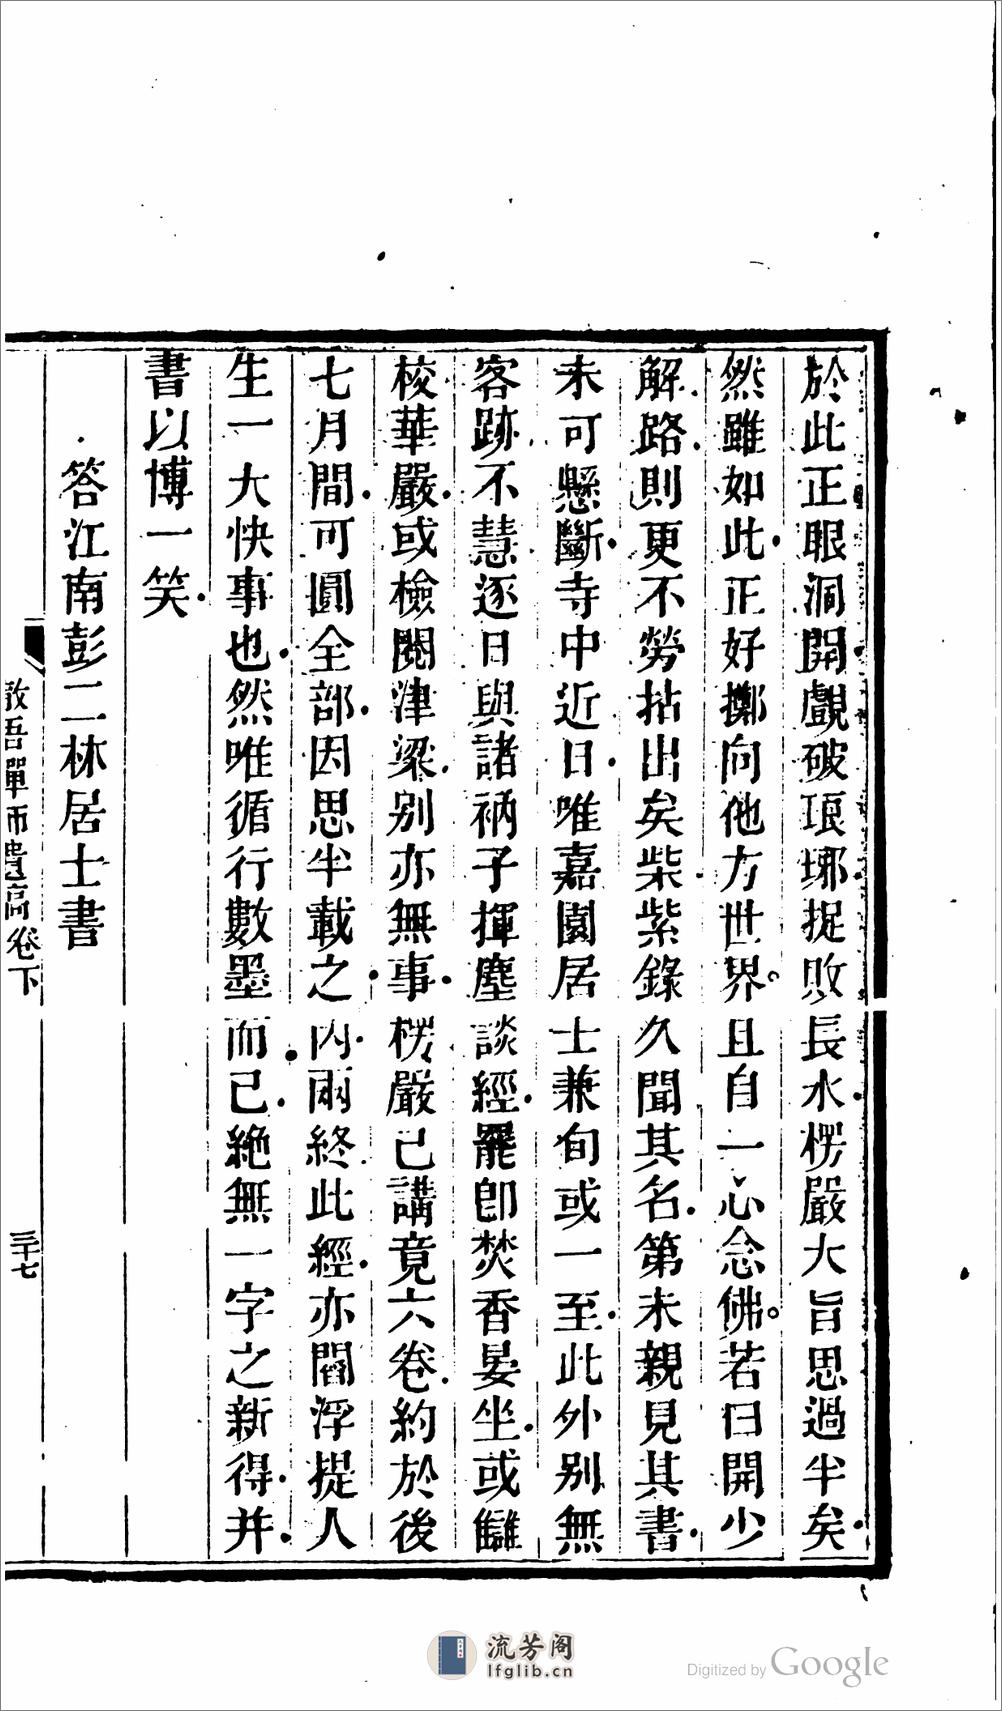 於此正眼洞開覷破琅琊捉敗長水楞嚴大旨思過半矣
然雖如此正好擲向他方世界且自一心念佛若曰開少
解路則更不勞拈出矣柴紫錄久聞其名第未親見其書
未可懸斷寺中近日唯嘉園居士兼旬或一至此外別無
客跡不慧逐日與諸衲子揮麈談經罷即焚香晏坐或讎
校華嚴或檢閱津梁別亦無事楞嚴已講竟六卷約於後
七月間可圓全部因思半載之內兩終此經亦閻浮提人
生一大快事也然唯循行數墨而已絶無一字之新得并
書以博一笑
答江南彭二林居士書
敏吾禪師遺高卷下
三十七
流芳阁
lfglib.cn
Digitized by Google